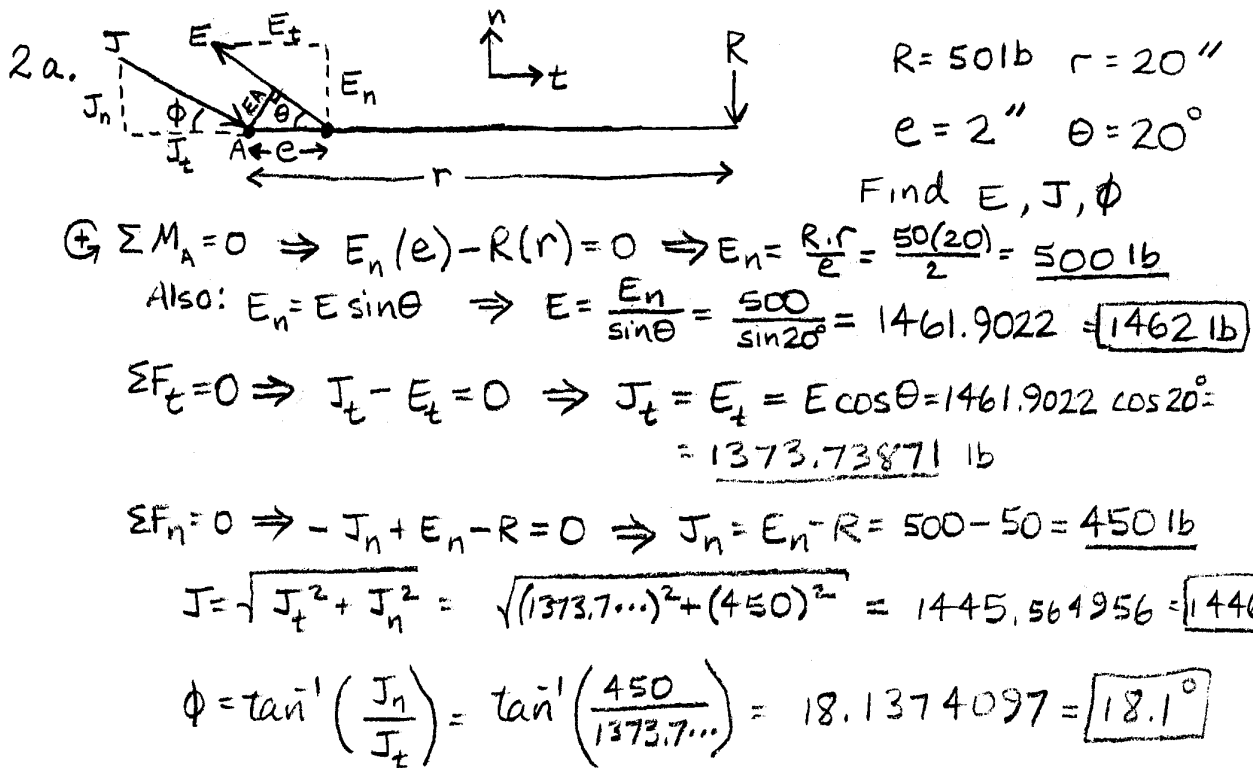 2a.
J E E_t n R
J_n φ J_t EA θ E_n t
A e
r
R = 50 lb r = 20"
e = 2" θ = 20°
Find E, J, φ
⊕ ΣM_A = 0 ⇒ E_n(e) - R(r) = 0 ⇒ E_n = R·r/e = 50(20)/2 = 500 lb
Also: E_n = E sinθ ⇒ E = E_n/sinθ = 500/sin20° = 1461.9022 = 1462 lb
ΣF_t = 0 ⇒ J_t - E_t = 0 ⇒ J_t = E_t = E cosθ = 1461.9022 cos20° =
= 1373.73871 lb
ΣF_n = 0 ⇒ - J_n + E_n - R = 0 ⇒ J_n = E_n - R = 500 - 50 = 450 lb
J = √(J_t² + J_n²) = √((1373.7...)² + (450)²) = 1445.564956 = 1446
φ = tan⁻¹(J_n/J_t) = tan⁻¹(450/1373.7...) = 18.1374097 = 18.1°